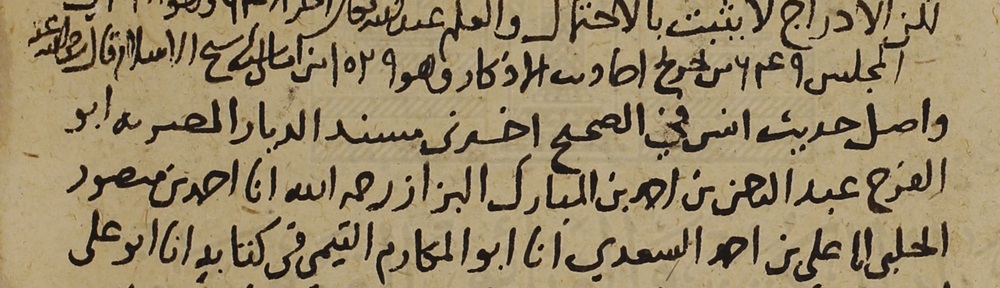 لكن الادراج لا يثبت بالاحتمال والعلم عند الله
المجلس ٦٤٩ من تخريج احاديث الاذكار وهو ١٥٢٩ من امالي شيخ الاسلام قال رضي الله عنه
واصل حديث انس في الصحيح اخبرني مسند الديار المصرية ابو
الفرج عبد الرحمن بن احمد بن المبارك البزاز رحمه الله انا احمد بن منصور
الحلبي انا علي بن احمد السعدي انا ابو المكارم التيمي في كتابه انا ابو علي